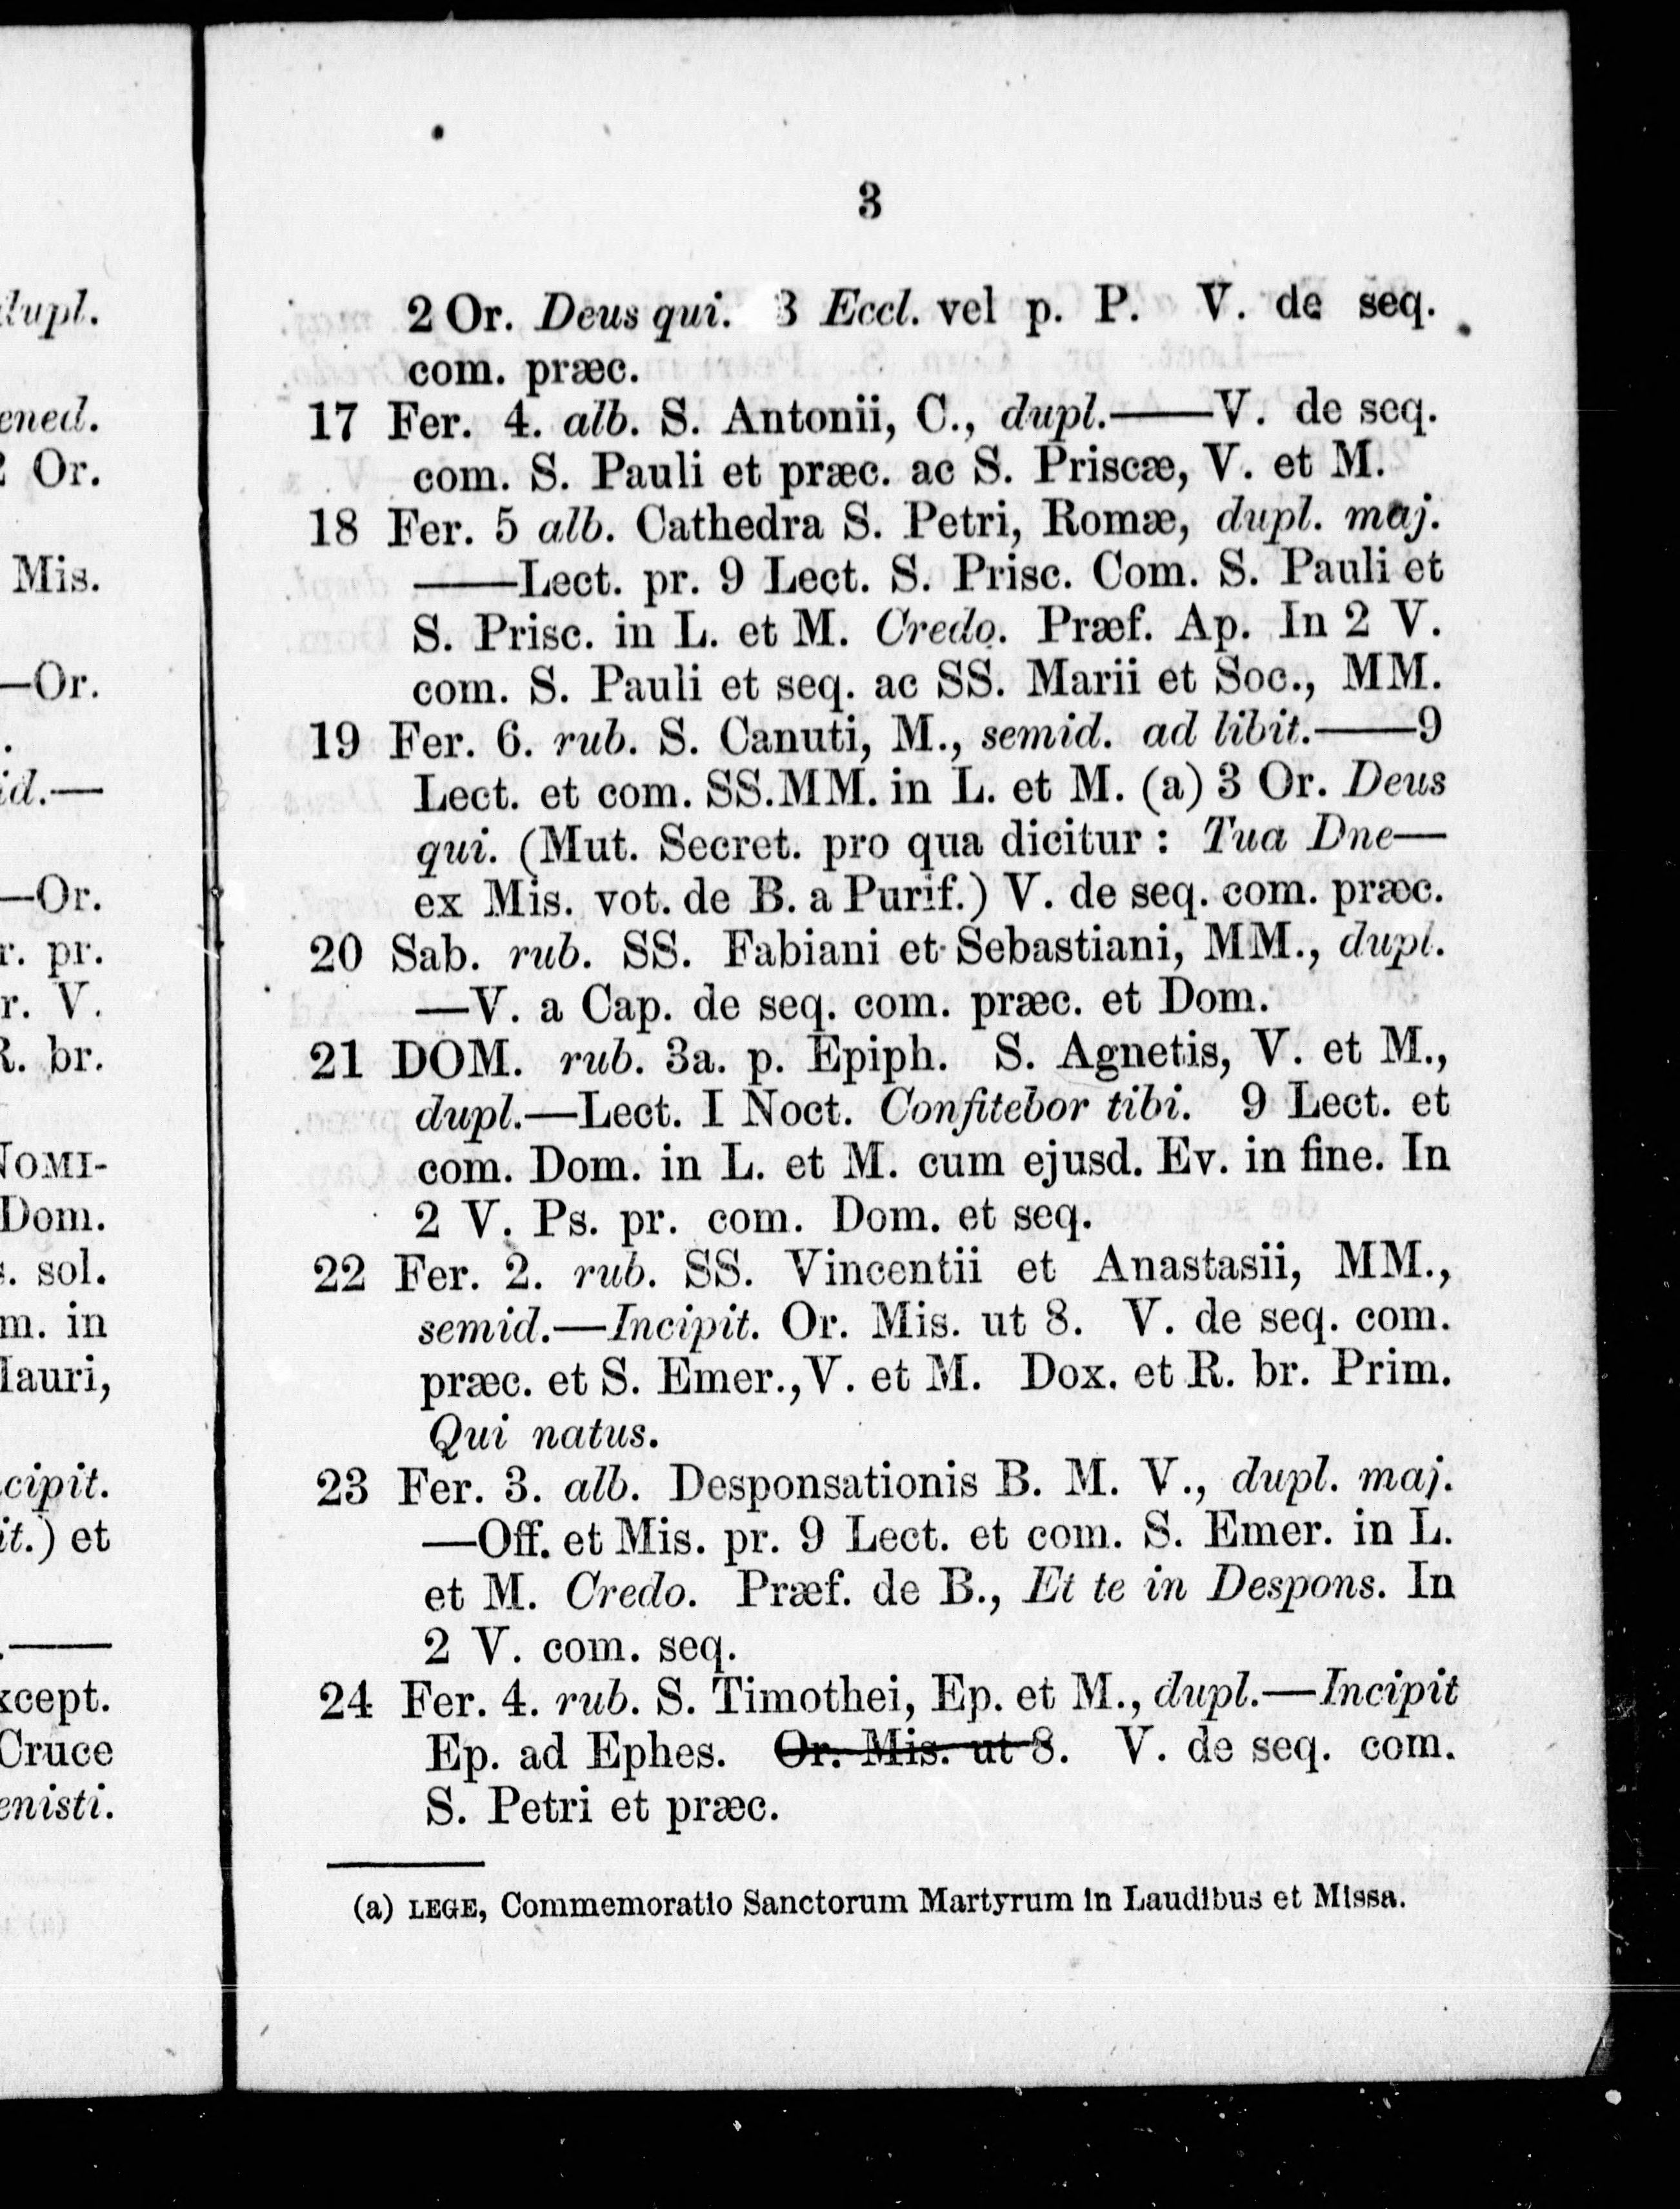 dupl.
ened.
2 Or.
Mis.
—Or.
.
id.—
—Or.
r. pr.
r. V.
R. br.
NOMI-
Dom.
s. sol.
m. in
Mauri,
cipit.
it.) et
.——
xcept.
Cruce
enisti.
3
2 Or. Deus qui. 3 Eccl. vel p. P. V. de seq.
com. præc.
17 Fer. 4. alb. S. Antonii, C., dupl.——V. de seq.
com. S. Pauli et præc. ac S. Priscæ, V. et M.
18 Fer. 5 alb. Cathedra S. Petri, Romæ, dupl. maj.
——Lect. pr. 9 Lect. S. Prisc. Com. S. Pauli et
S. Prisc. in L. et M. Credo. Præf. Ap. In 2 V.
com. S. Pauli et seq. ac SS. Marii et Soc., MM.
19 Fer. 6. rub. S. Canuti, M., semid. ad libit.——9
Lect. et com. SS.MM. in L. et M. (a) 3 Or. Deus
qui. (Mut. Secret. pro qua dicitur : Tua Dne—
ex Mis. vot. de B. a Purif.) V. de seq. com. præc.
20 Sab. rub. SS. Fabiani et Sebastiani, MM., dupl.
—V. a Cap. de seq. com. præc. et Dom.
21 DOM. rub. 3a. p. Epiph. S. Agnetis, V. et M.,
dupl.—Lect. I Noct. Confitebor tibi. 9 Lect. et
com. Dom. in L. et M. cum ejusd. Ev. in fine. In
2 V. Ps. pr. com. Dom. et seq.
22 Fer. 2. rub. SS. Vincentii et Anastasii, MM.,
semid.—Incipit. Or. Mis. ut 8. V. de seq. com.
præc. et S. Emer., V. et M. Dox. et R. br. Prim.
Qui natus.
23 Fer. 3. alb. Desponsationis B. M. V., dupl. maj.
—Off. et Mis. pr. 9 Lect. et com. S. Emer. in L.
et M. Credo. Præf. de B., Et te in Despons. In
2 V. com. seq.
24 Fer. 4. rub. S. Timothei, Ep. et M., dupl.—Incipit
Ep. ad Ephes. Or. Mis. ut 8. V. de seq. com.
S. Petri et præc.
(a) LEGE, Commemoratio Sanctorum Martyrum in Laudibus et Missa.